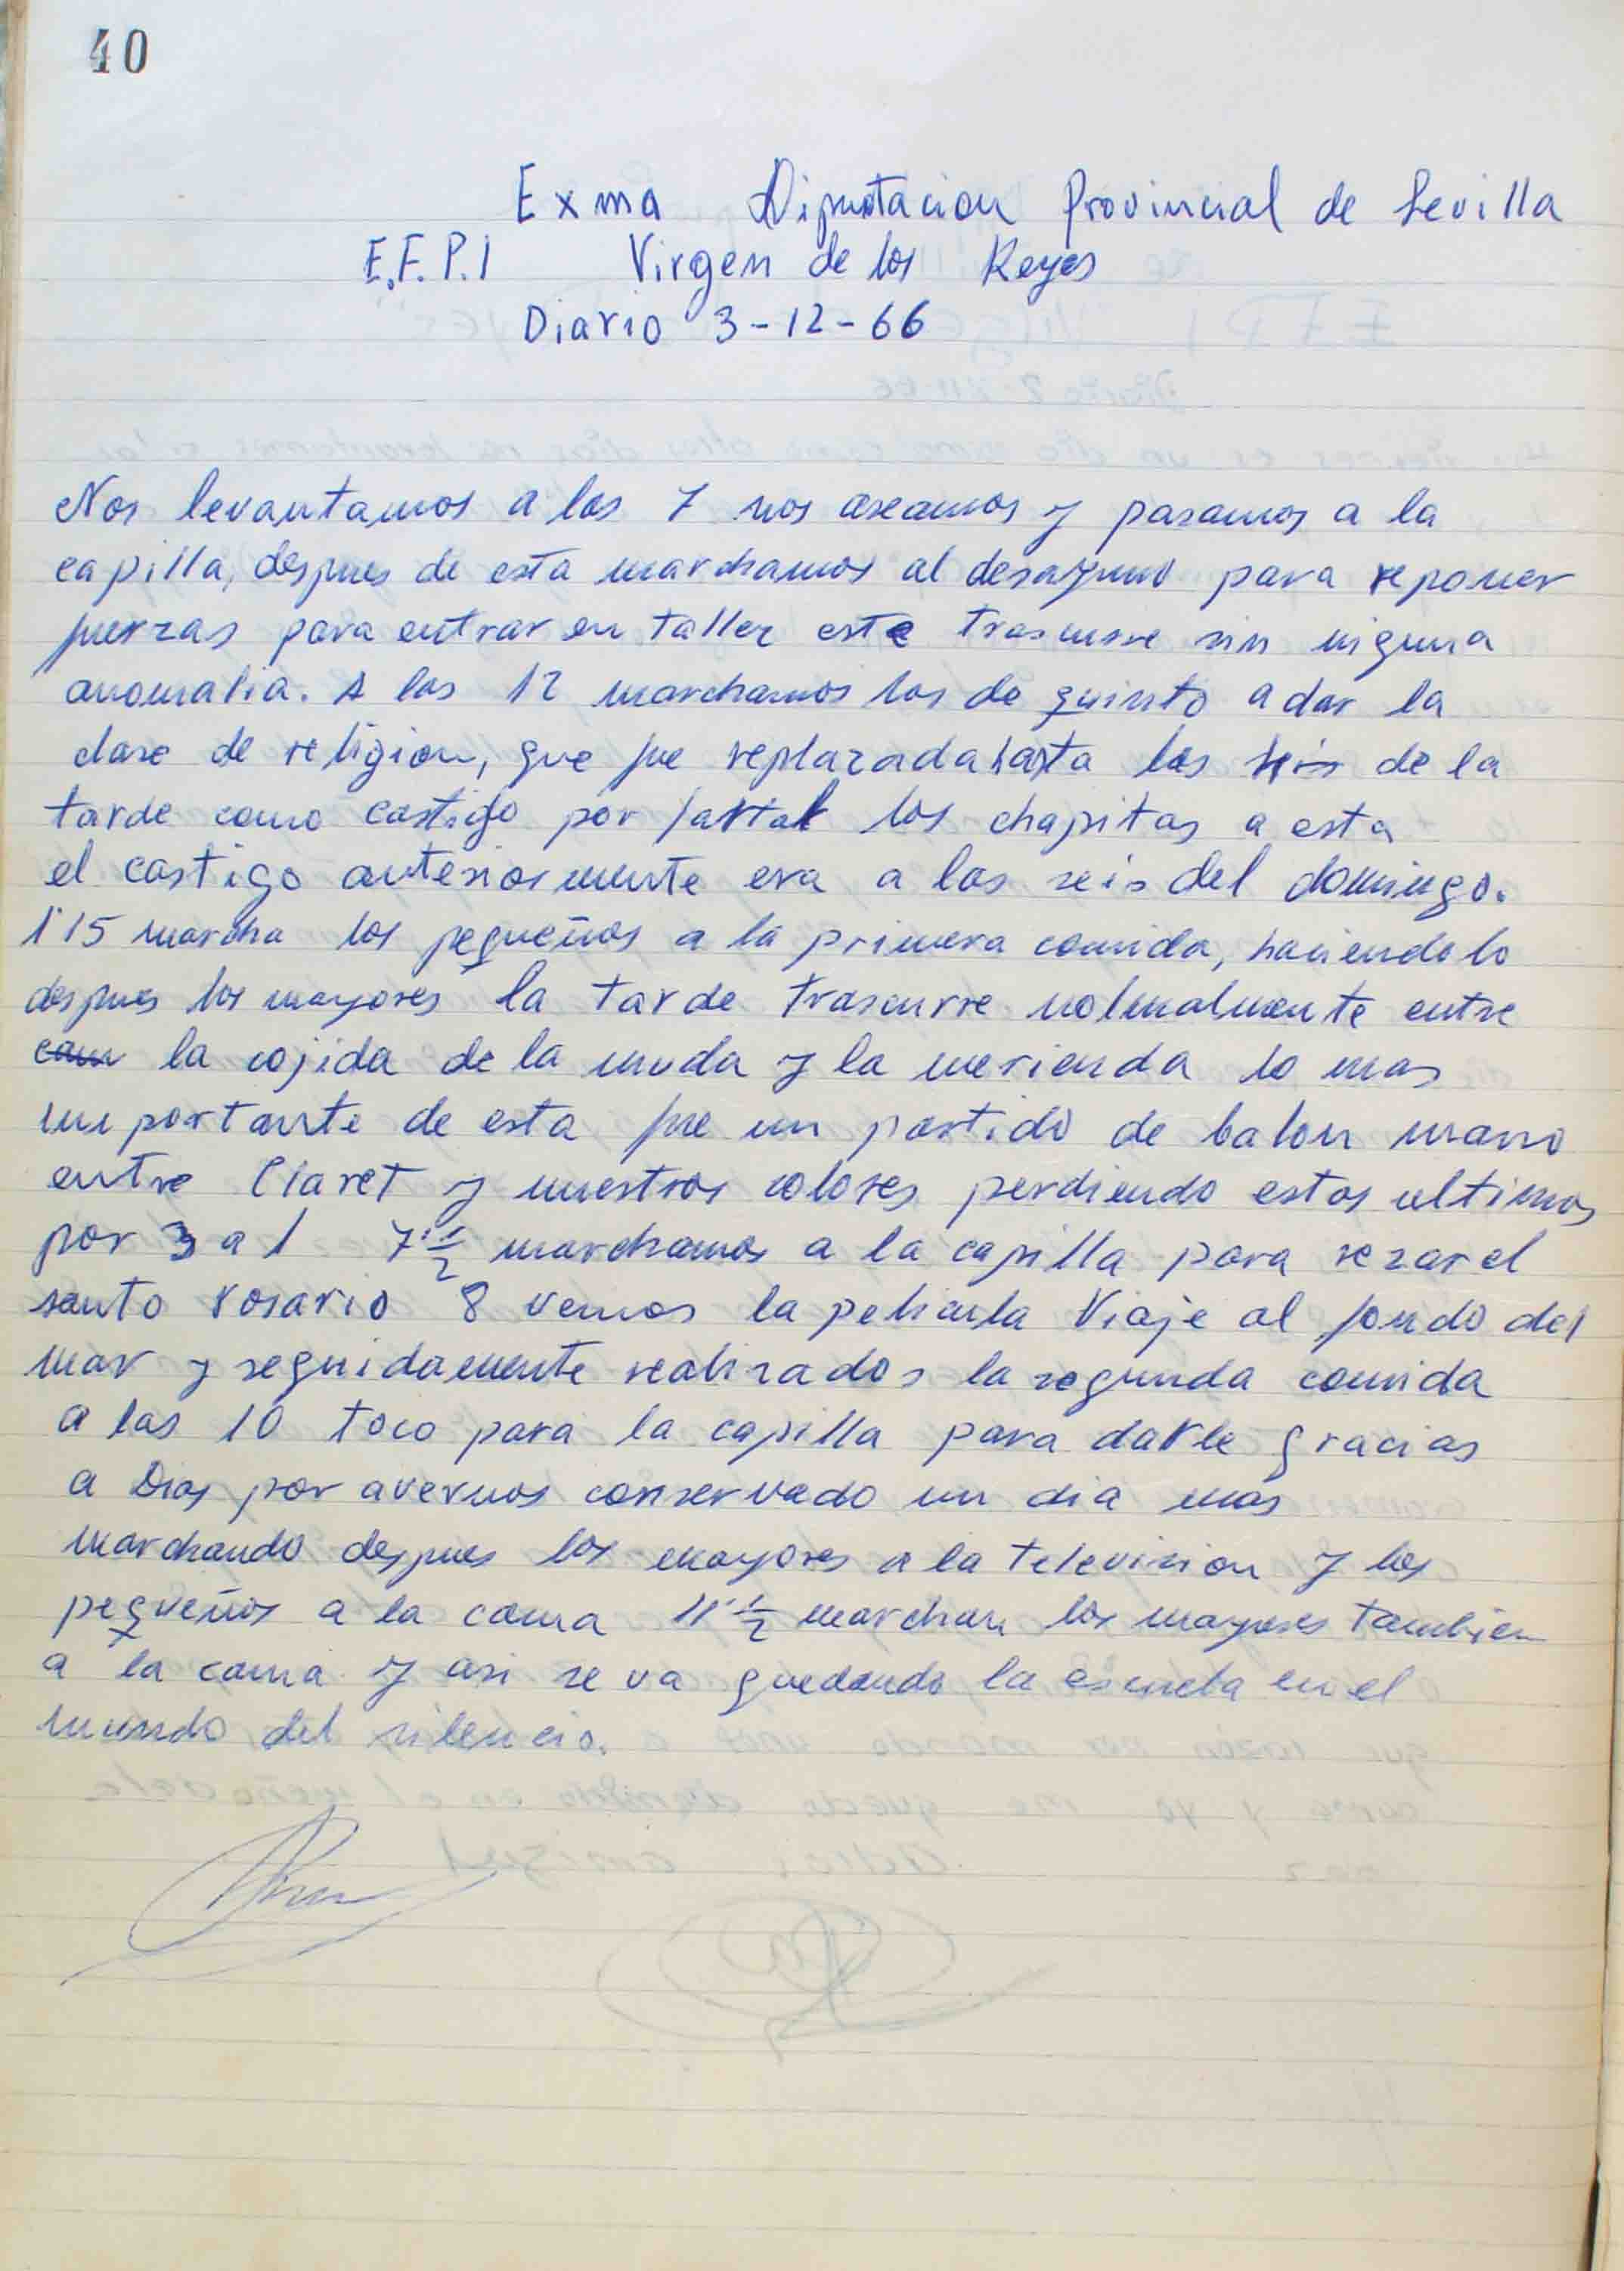 40
Exma Diputacion Provincial de Sevilla
E.F.P.I Virgen de los Reyes
Diario 3-12-66
Nos levantamos a las 7 nos aseamos y pasamos a la
capilla, despues de esta marchamos al desayuno para reponer
fuerzas para entrar en taller este trascurre sin niguna
anomalia. A las 12 marchamos los de quinto a dar la
clase de religion, que fue replazada hasta las seis de la
tarde como castigo por faltar los chapitas a esta
el castigo anteriormente era a las seis del domingo.
1'15 marcha los pequeños a la primera comida, haciendolo
despues los mayores la tarde trascurre nolmalmente entre
la cojida de la muda y la merienda lo mas
importante de esta fue un partido de balon mano
entre Claret y nuestros colores perdiendo estos ultimos
por 3 a 1 7'½ marchamos a la capilla para rezar el
santo rosario 8 vemos la pelicula Viaje al fondo del
mar y seguidamente realizados la segunda comida
a las 10 toco para la capilla para darle gracias
a Dios por avernos conservado un dia mas
marchando despues los mayores a la television y los
pequeños a la cama 11'½ marchan los mayores tambien
a la cama y asi se va quedando la escuela en el
mundo del silencio.